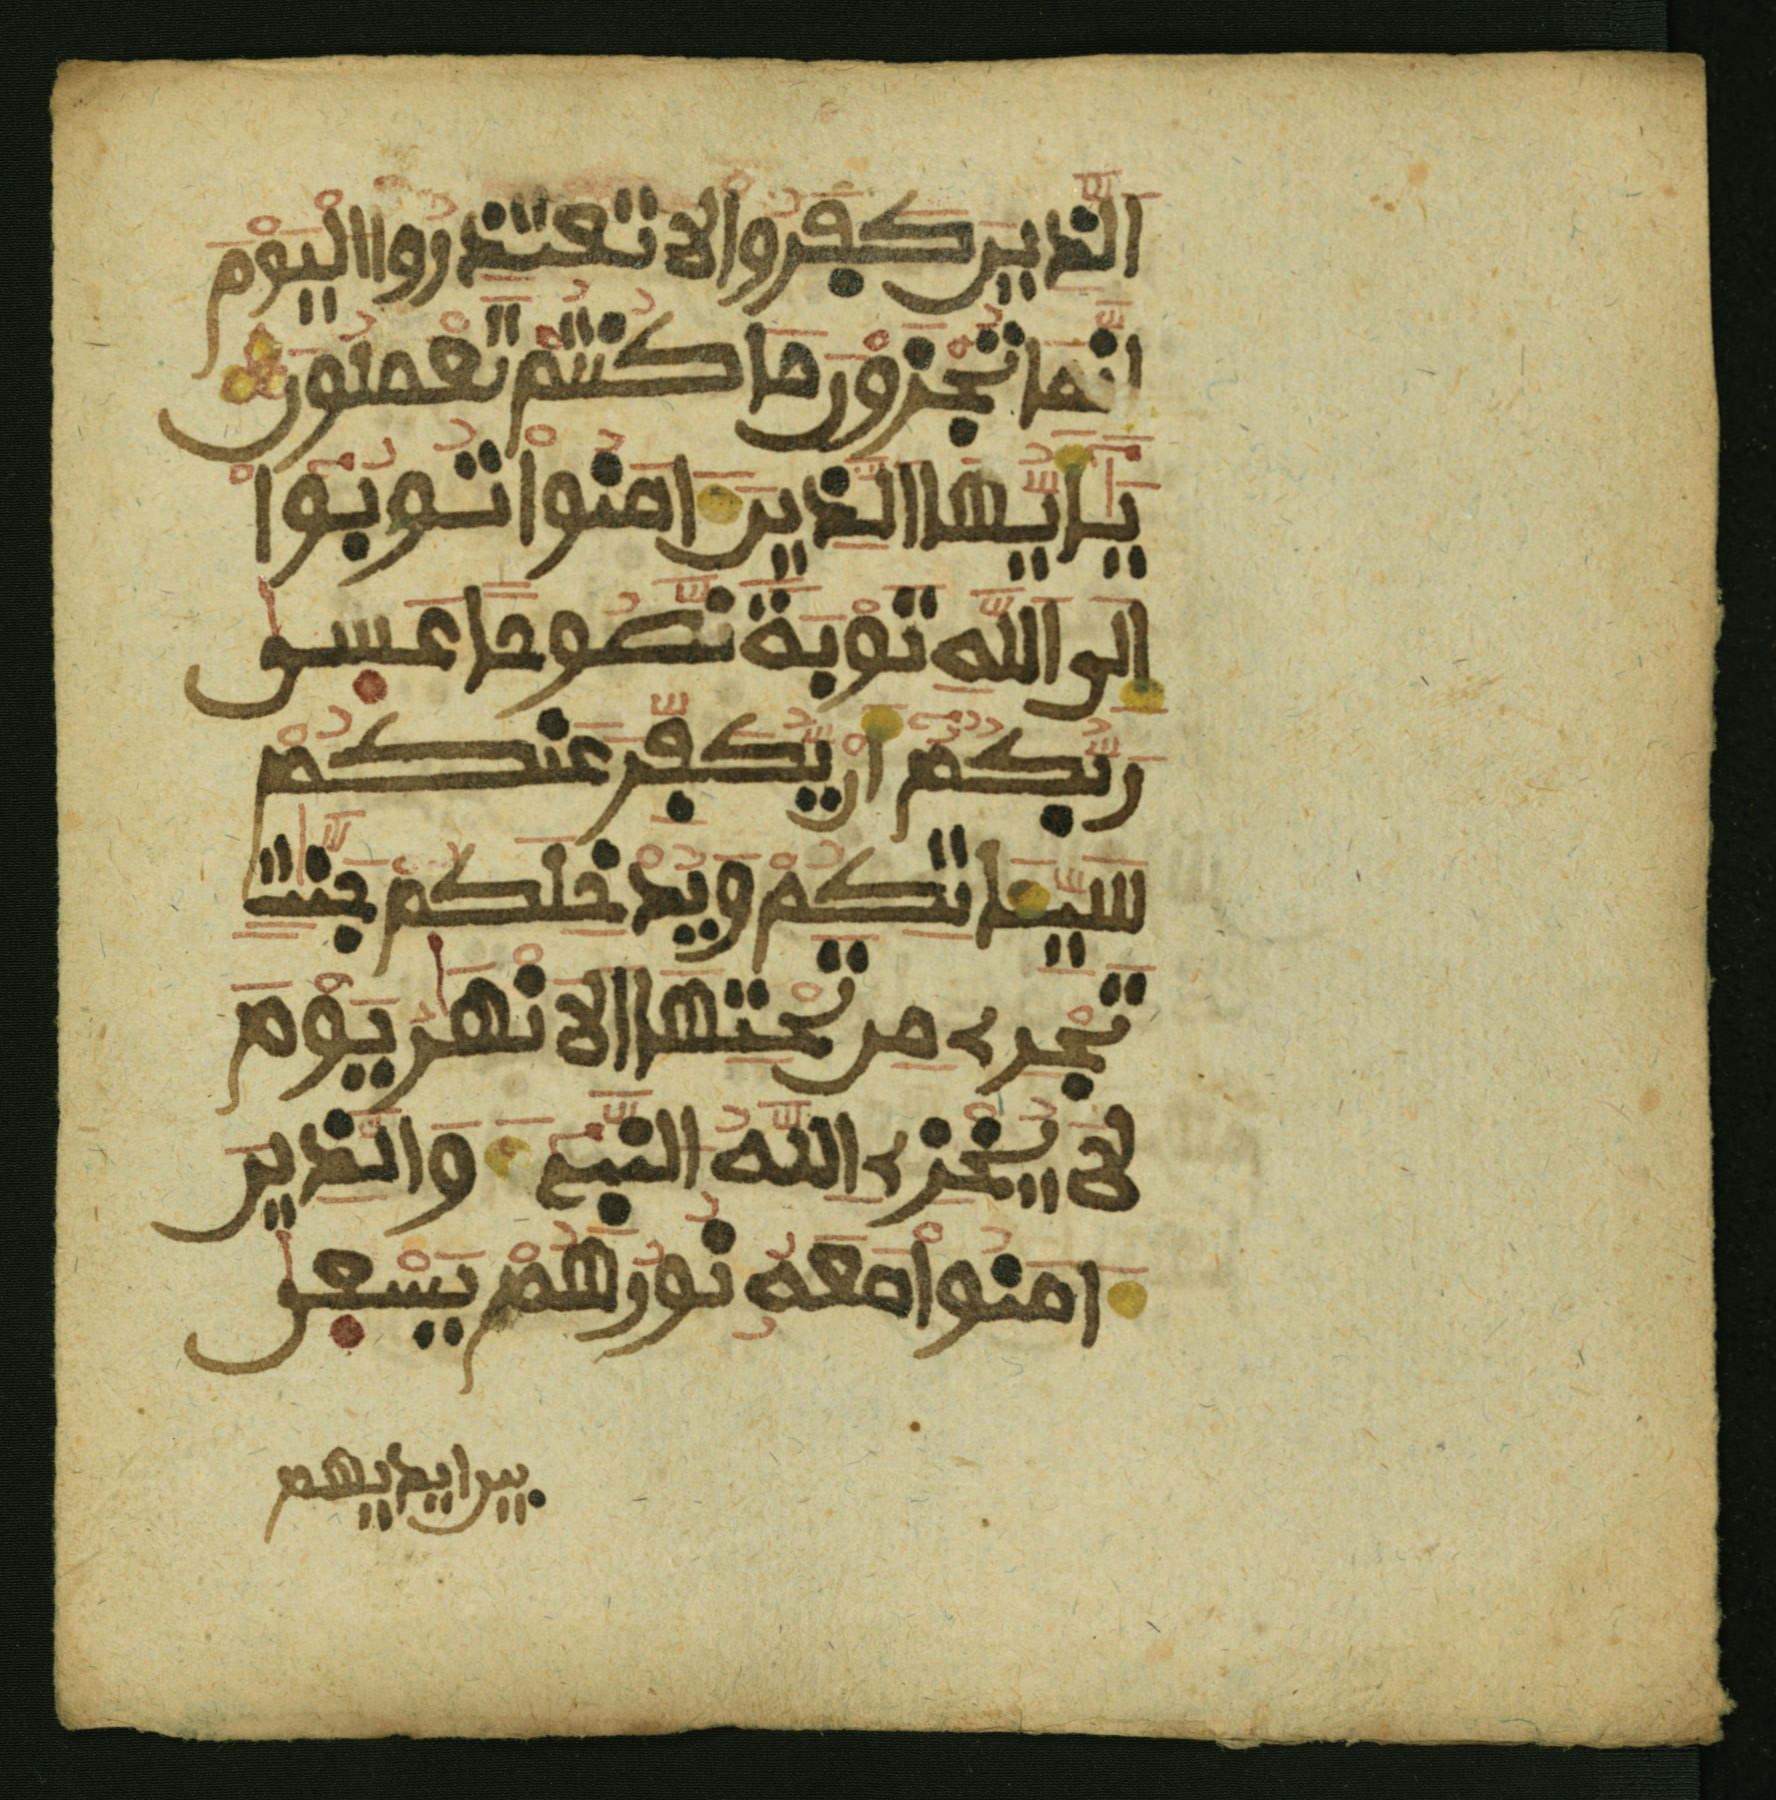 الَّذِينَ كَفَرُواْ لَا تَعْتَذِرُواْ الْيَوْمَ
إِنَّمَا تُجْزَوْنَ مَا كُنتُمْ تَعْمَلُونَ
يَٰأَيُّهَا الَّذِينَ ءَامَنُواْ تُوبُواْ
إِلَى اللَّهِ تَوْبَةً نَّصُوحًا عَسَىٰ
رَبُّكُمُۥ أَنْ يُّكَفِّرَ عَنكُمْ
سَيِّـَٔاتِكُمْ وَيُدْخِلَكُمْ جَنَّٰتٍ
تَجْرِے مِن تَحْتِهَا الَانْهَٰرُ يَوْمَ
لَا يُخْزِے اللَّهُ النَّبِيٓءَ وَالَّذِينَ
ءَامَنُواْ مَعَهُۥ نُورُهُمْ يَسْعَىٰ
بين ايديهم